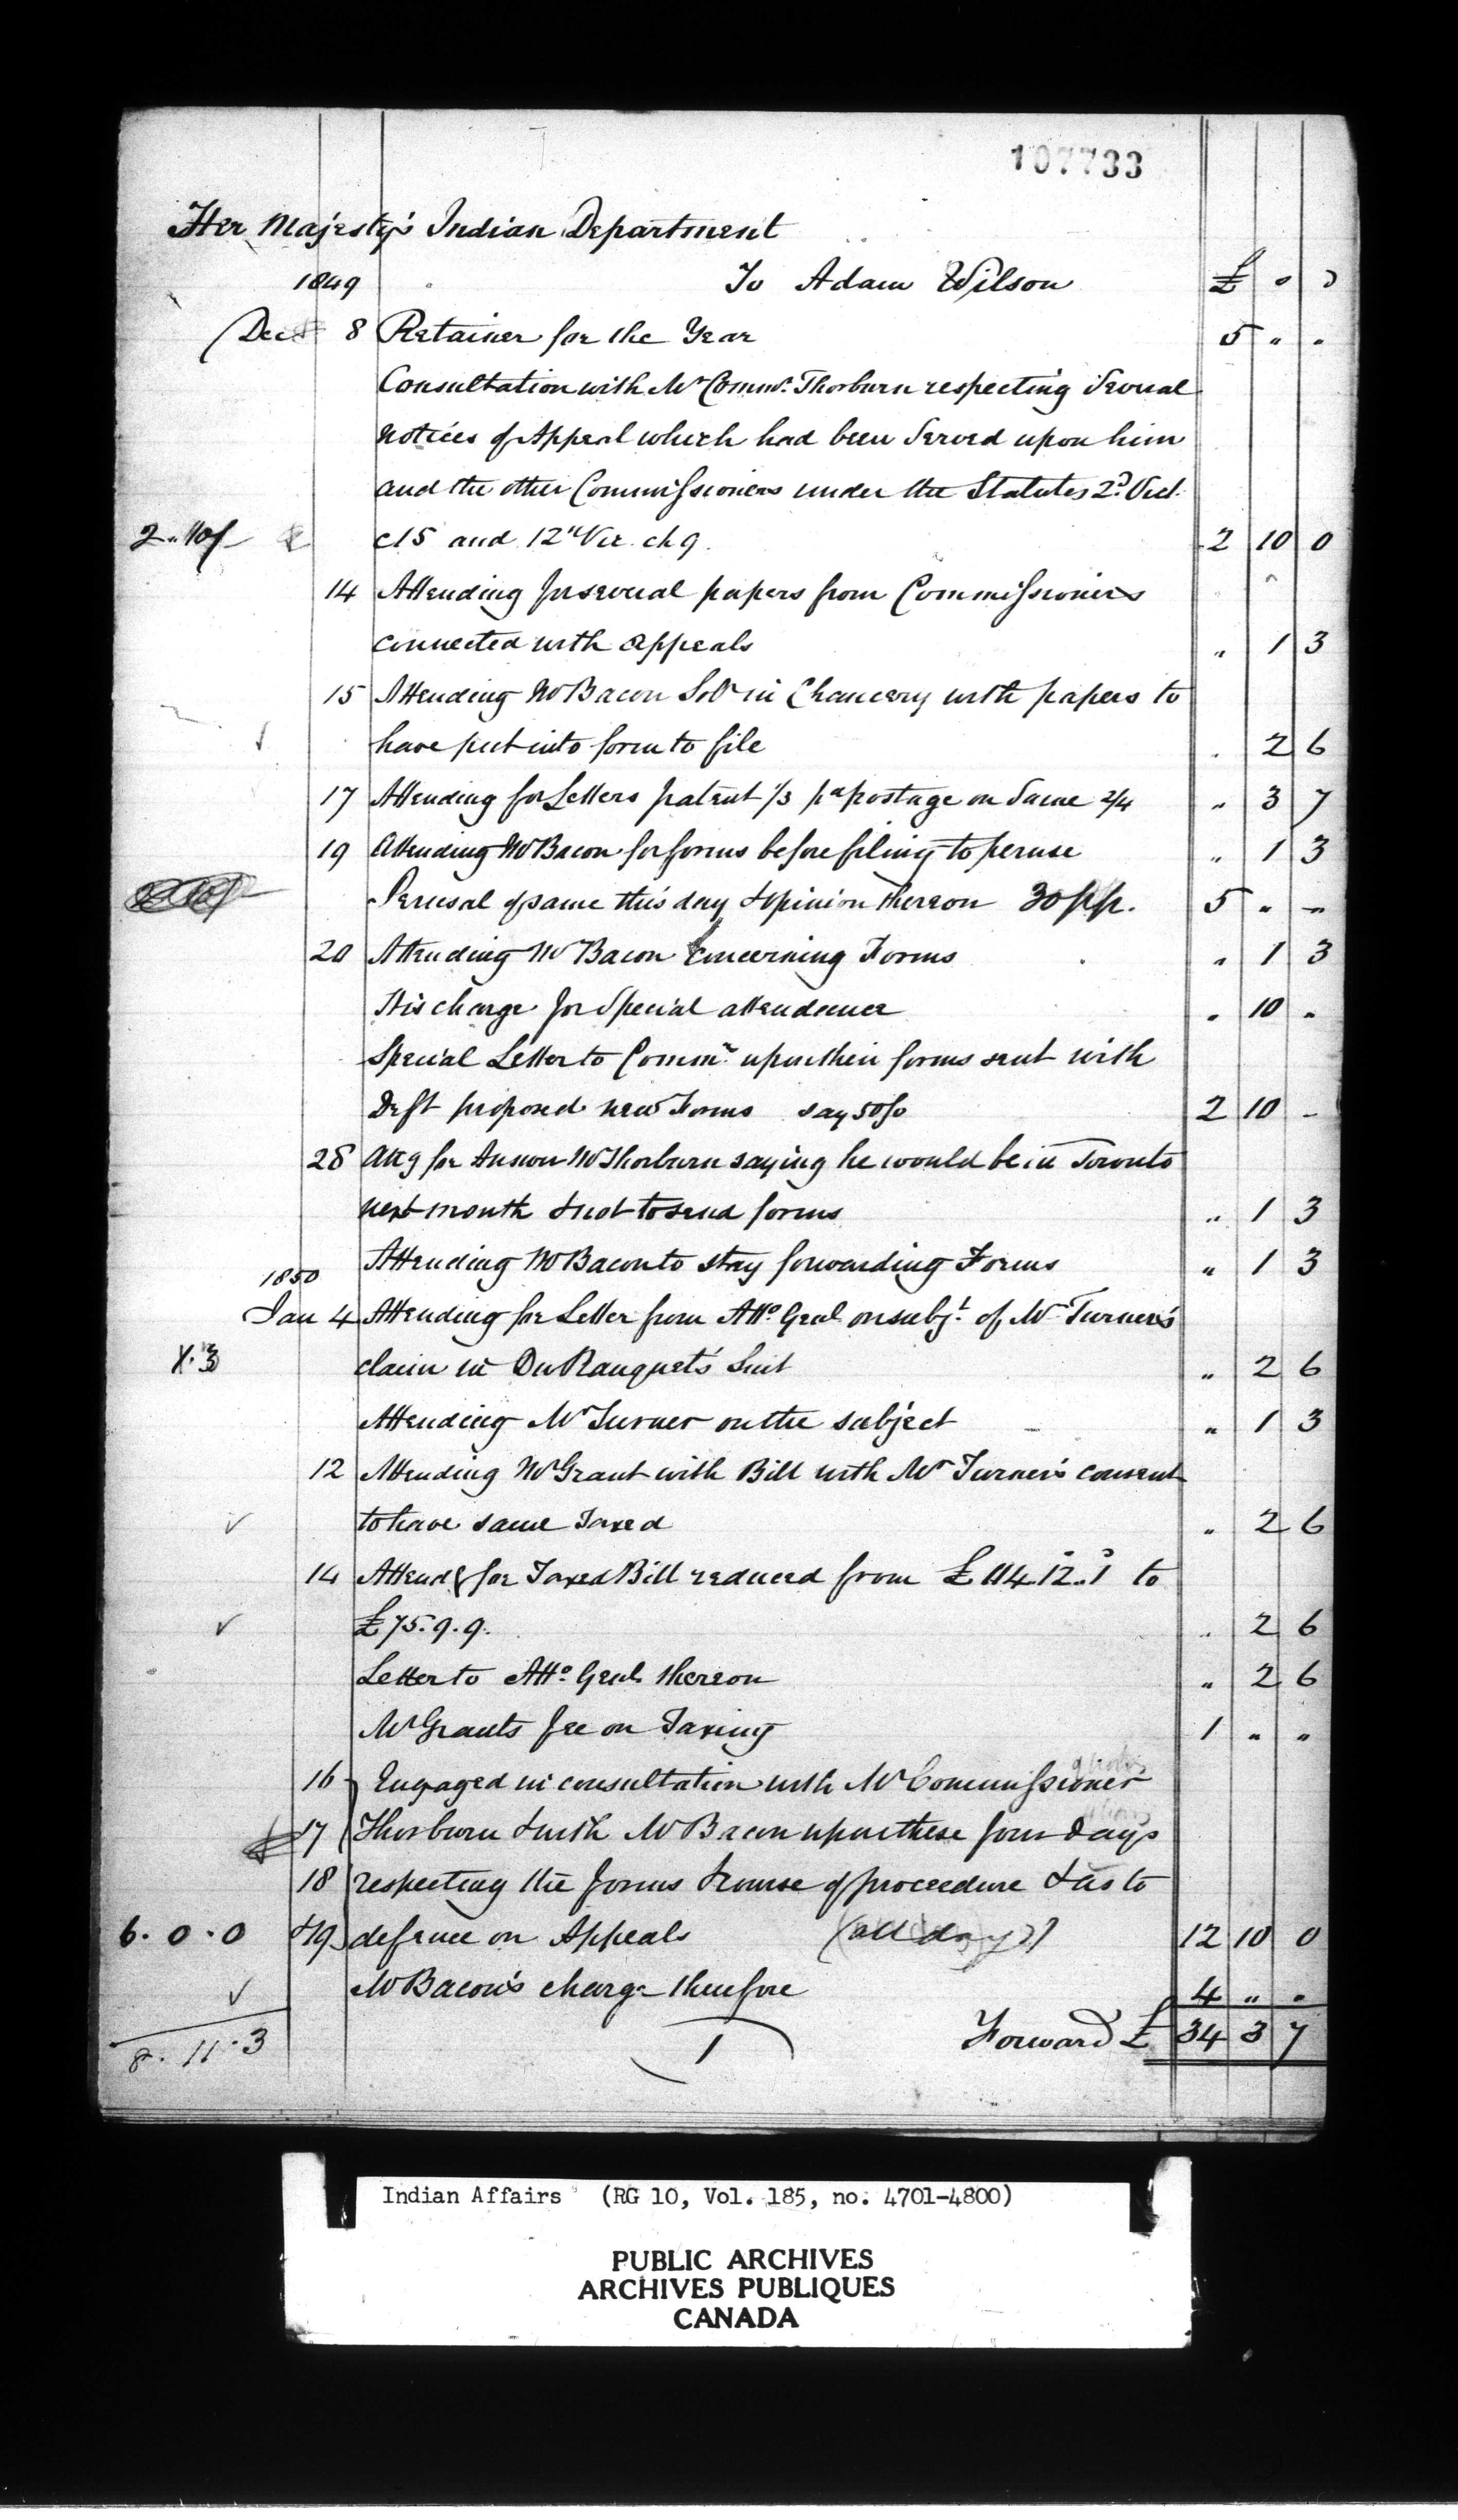 107733
Her Majesty's Indian Department
1849 To Adam Wilson £ s d
Dec 8 Retainer for the Year 5 " "
Consultation with Mr Commr. Thorburn respecting several
notices of Appeal which had been served upon him
and the other Commissioners under the Statutes 2d Vict.
2.. 10/- c15 and 12" Vic. ch 9. 2 10 0
14 Attending for several papers from Commissioners
connected with appeals " 1 3
15 Attending Mr Bacon Solr in Chancery with papers to
have put into form to file " 2 6
17 Attending for Letters patent 1/3 pd postage on same 2/4 " 3 7
19 Attending Mr Bacon for forms before filing to peruse " 1 3
Perusal of same this day & opinion thereon 30 pp. 5 " "
20 Attending Mr Bacon concerning Forms " 1 3
His charge for special attendance " 10 "
Special Letter to Commrs upon their forms sent with
Dft proposed new Forms say 50/s 2 10 -
28 Attg for Answer Mr Thorburn saying he would be in Toronto
next month & not to send forms " 1 3
Attending Mr Bacon to stay forwarding Forms " 1 3
1850
Jan 4 Attending for Letter from Atto. Genl on subjt. of Mr Turner's
1.3 claim in Du Ranquet's Suit " 2 6
Attending Mr Turner on the subject " 1 3
12 Attending Mr Grant with Bill with Mr Turner's consent
to have same Taxed " 2 6
14 Attend g for Taxed Bill reduced from £114.12.1 to
£75.9.9. " 2 6
Letter to Atto. Genl. thereon " 2 6
Mr Grants fee on Taxing 1 " "
16 Engaged in consultation with Mr Commissioner
17 Thorburn & with Mr Bacon upon these four days
18 respecting the forms & course of proceedure & as to
6.0.0 &19 defence on Appeals (all day) 12 10 0
Mr Bacon's charge therefore 4 " "
8.11.3 1 Forward £ 34 3 7
Indian Affairs (RG 10, Vol. 185, no. 4701-4800)
PUBLIC ARCHIVES
ARCHIVES PUBLIQUES
CANADA